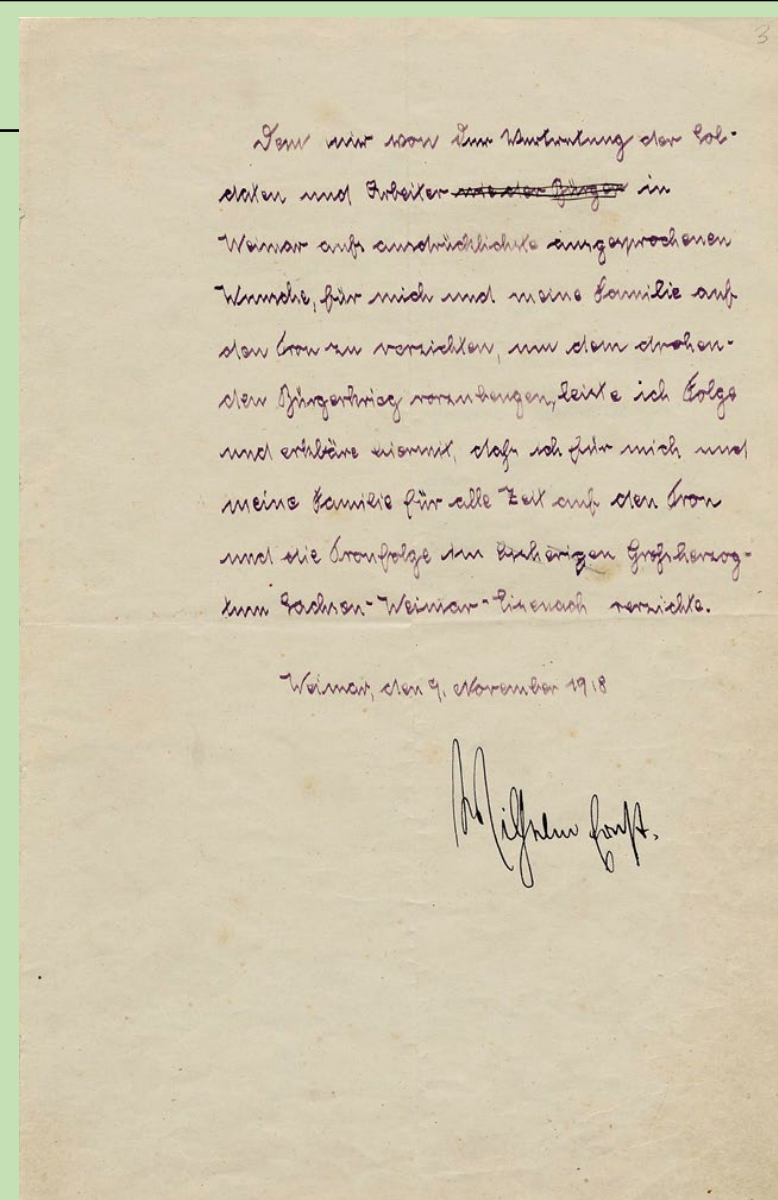 3
Dem mir von der Vertretung der Sol-
daten und Arbeiter wie der Bürger in
Weimar aufs ausdrücklichste ausgesprochenen
Wunsche, für mich und meine Familie auf
den Tron zu verzichten, um dem drohen-
den Bürgerkrieg vorzubeugen, leiste ich Folge
und erkläre hiermit, daß ich für mich und
meine Familie für alle Zeit auf den Tron
und die Tronfolge im bisherigen Großherzog-
tum Sachsen-Weimar-Eisenach verzichte.
Weimar, den 9. November 1918
Wilhelm Ernst.